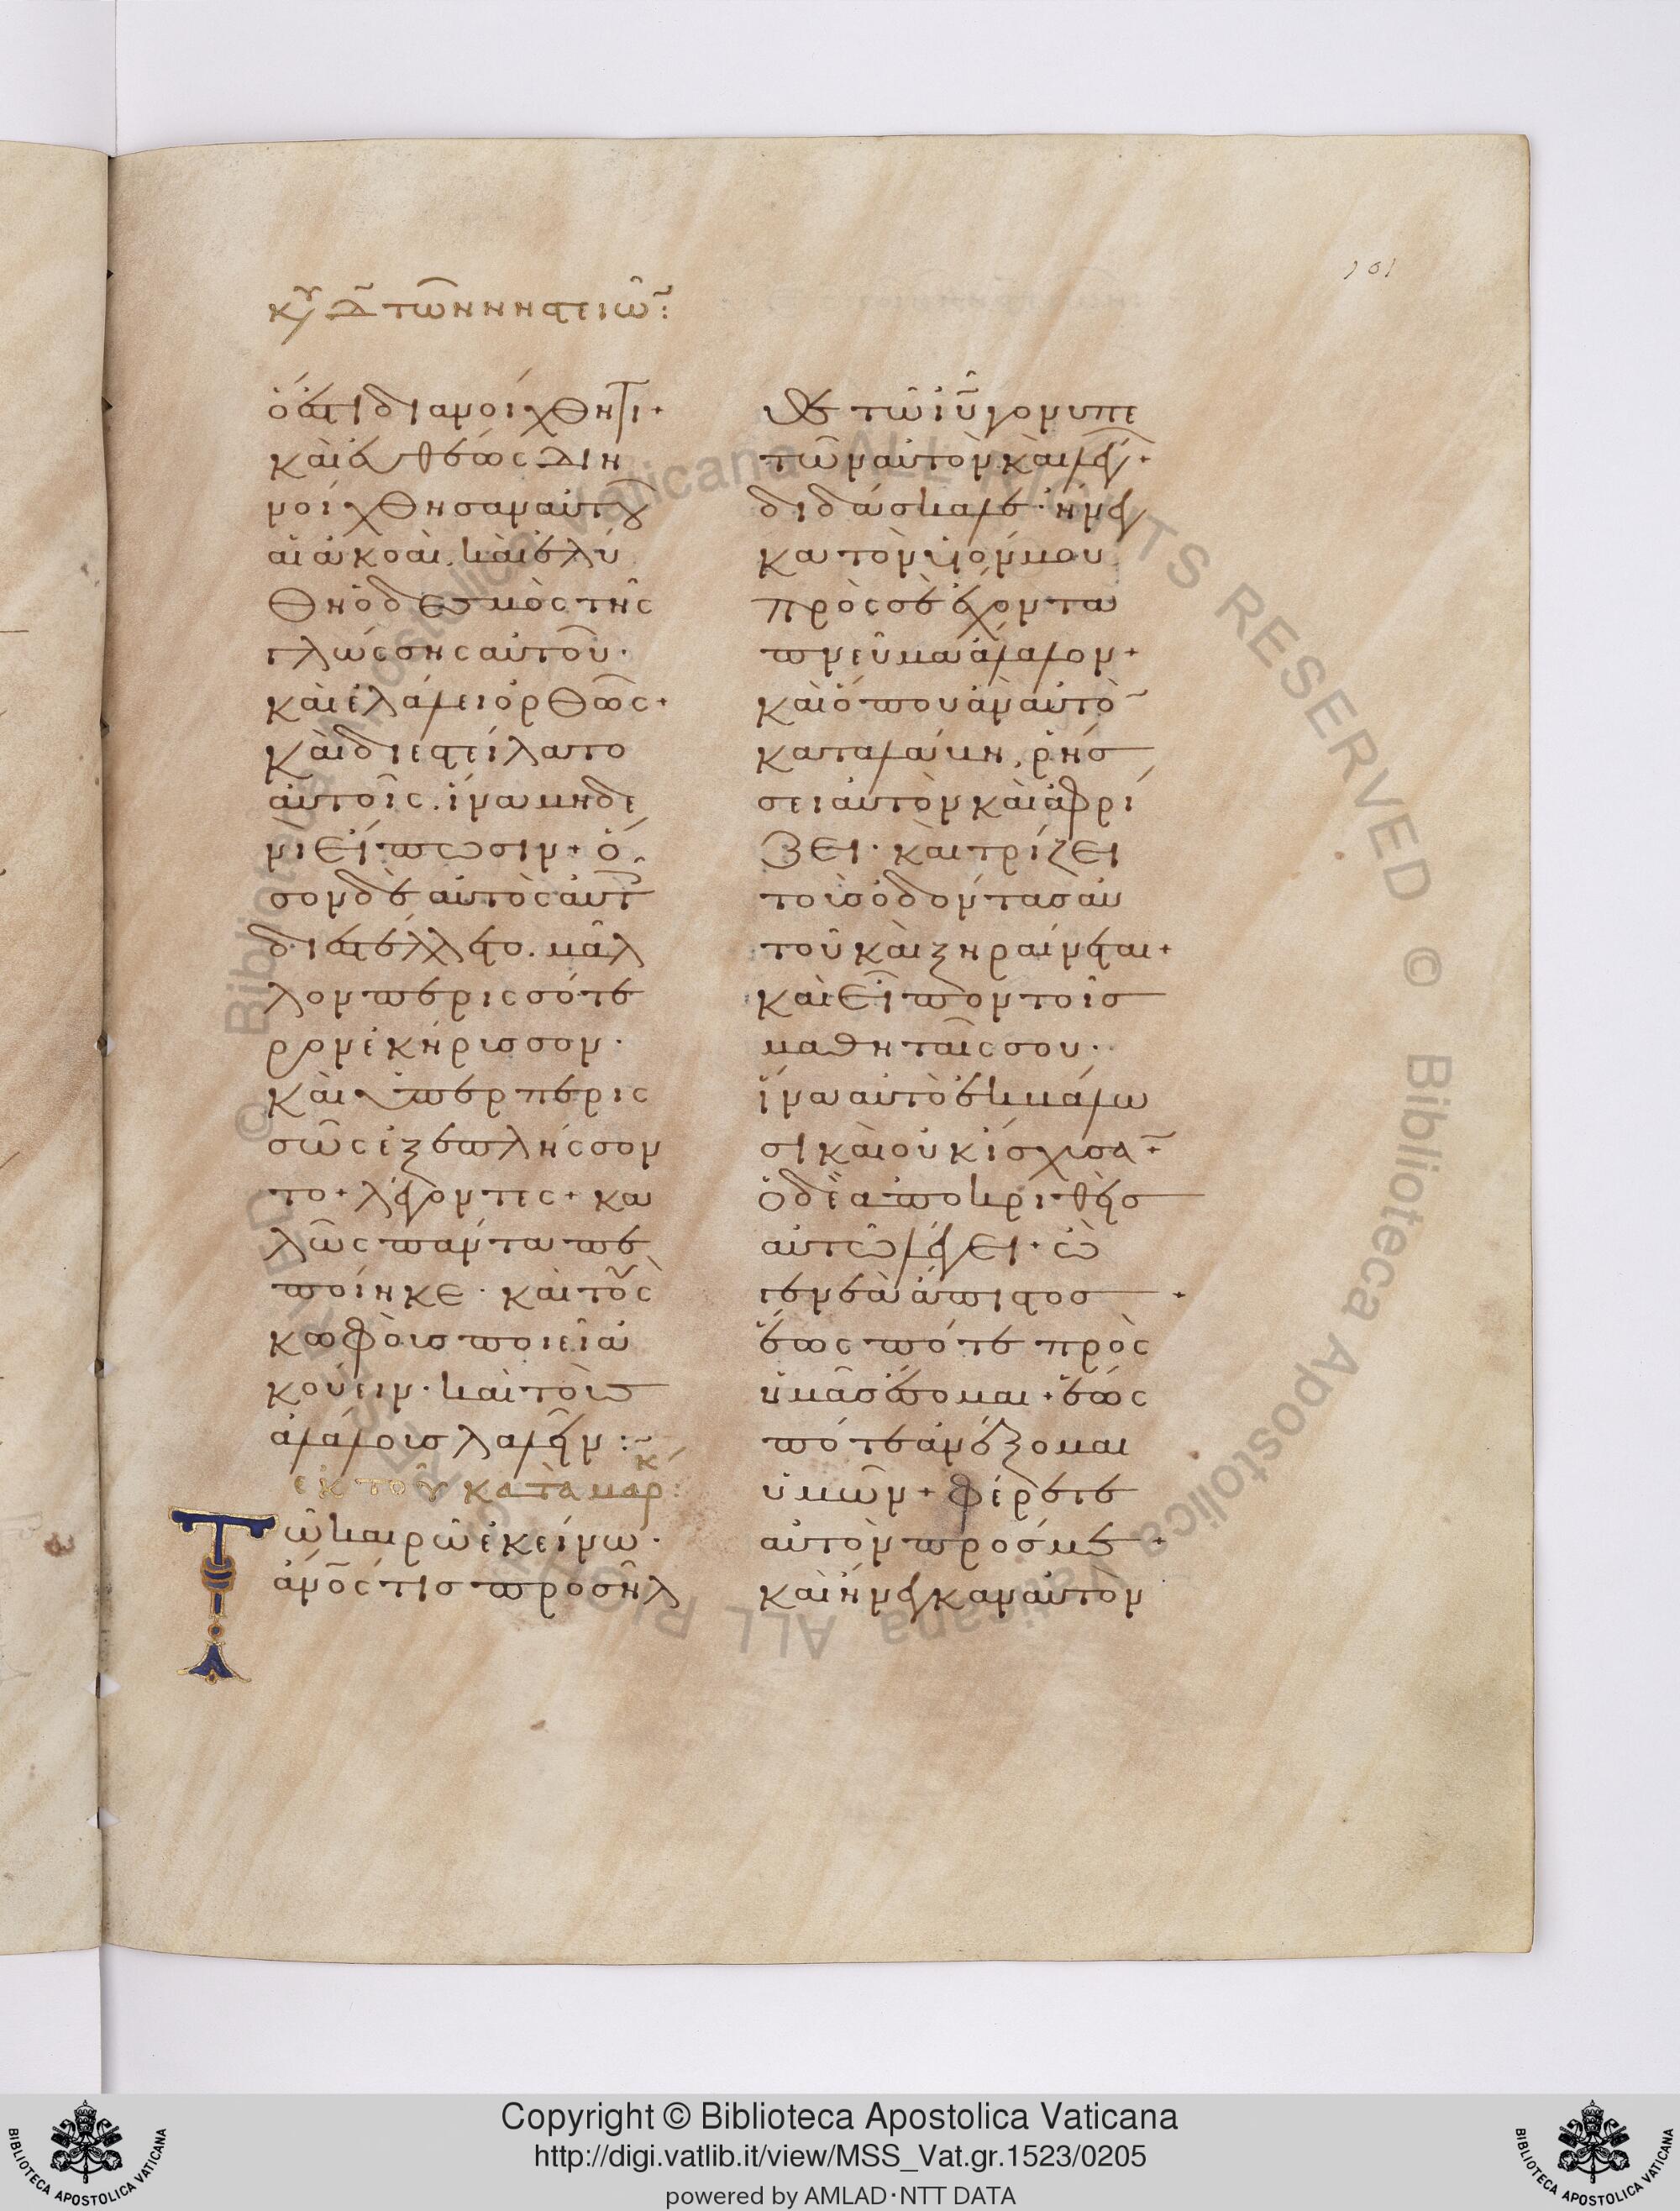 101
κυ δ τῶν νηστειῶ:
ὅ ἐστι διανοίχθητι·
καὶ εὐθέως διη
νοίχθησαν αὐτοῦ
αἱ ἀκοαὶ. καὶ ἐλύ
θη ὁ δεσμὸς τῆς
γλώσσης αὐτοῦ·
καὶ ἐλάλει ὀρθῶς·
καὶ διεστείλατο
αὐτοῖς. ἵνα μηδε
νὶ εἴπωσιν· ὅ
σον δὲ αὐτὸς αὐτ
διεστέλλετο. μᾶλ
λον περισσότε
ρον ἐκήρισσον·
καὶ ὑπερπερισ
σῶς ἐξεπλήσσον
το· λέγοντες· κα
λῶς πάντα πε
ποίηκε· καὶ τοὺς
κωφοὺς ποιεῖ ἀ
κούειν· καὶ τοὺς
ἀλάλους λαλεῖν :~
ἐκ τοῦ κατὰ μάρκ:
Τῶ καιρῶ ἐκείνω·
ἀνος τίς προσῆλ
θε τῶ ιυ γονυπε
τῶν αὐτὸν καὶ λέγ·
διδάσκαλε· ἤνεγ
κα τὸν υἱόν μου
πρὸς σὲ ἔχοντα
πνεῦμα ἄλαλον·
καὶ ὅπου ἂν αὐτὸ
καταλάβη, ῥήσ
σει αὐτὸν καὶ ἀφρί
ζει· καὶ τρίζει
τοὺς ὀδόντας αὐ
τοῦ καὶ ξηραίνεται·
καὶ εἶπον τοῖς
μαθηταῖς σου·
ἵνα αὐτὸ ἐκβάλω
σι καὶ οὐκ ἴσχυσα·
ὁ δὲ ἀποκριθεὶς
αὐτῶ λέγει· ὦ
γενεὰ ἄπιστος·
ἕως πότε πρὸς
ὑμᾶς ἔσομαι· ἕως
πότε ἀνέξομαι
ὑμῶν· φέρετε
αὐτὸν πρός με·
καὶ ἤνεγκαν αὐτὸν
Copyright © Biblioteca Apostolica Vaticana
http://digi.vatlib.it/view/MSS_Vat.gr.1523/0205
powered by AMLAD·NTT DATA
BIBLIOTECA APOSTOLICA VATICANA
BIBLIOTECA APOSTOLICA VATICANA
© Biblioteca Apostolica Vaticana ALL RIGHTS RESERVED © Biblioteca Apostolica Vaticana ALL RIGHTS RESERVED